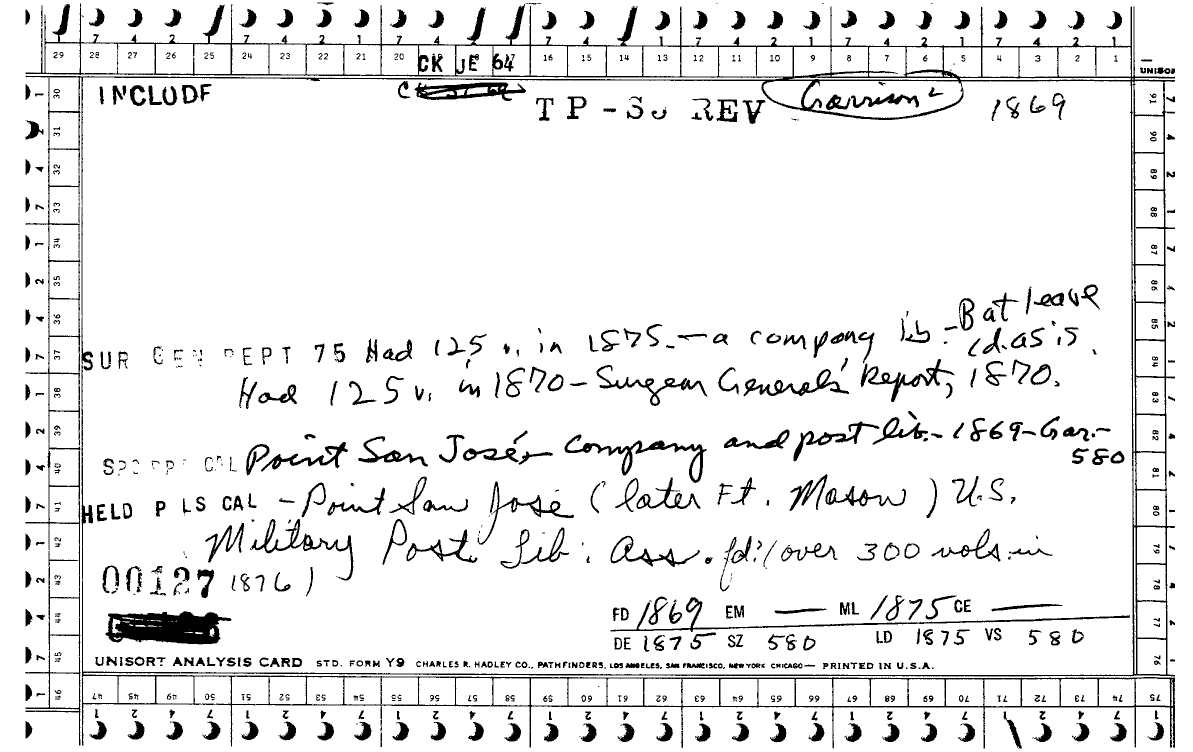 7 4 2 1 7 4 2 1 7 4 2 1 7 4 2 1 7 4 2 1 7 4 2 1
29 28 27 26 25 24 23 22 21 20 CK JE 64 16 15 14 13 12 11 10 9 8 7 6 5 4 3 2 1
UNISOR
INCLUDE
TP-SU REV Garrison 1869
SUR GEN DEPT 75 Had 125 v. in 1875.—a company lib.—But leave
cd. as is.
Had 125 v. in 1870—Surgeon General's Report, 1870.
Point San José, company and post lib.—1869—Gar.—
580
HELD P LS CAL — Point San José (later Ft. Mason) U.S.
Military Post. Lib. Ass. fd. (over 300 vols. in
00127 1876)
FD 1869 EM — ML 1875 CE —
DE 1875 SZ 580 LD 1875 VS 580
UNISORT ANALYSIS CARD STD. FORM Y9 CHARLES R. HADLEY CO., PATHFINDERS, LOS ANGELES, SAN FRANCISCO, NEW YORK CHICAGO— PRINTED IN U.S.A.
30 31 32 33 34 35 36 37 38 39 40 41 42 43 44 45 46
91 90 89 88 87 86 85 84 83 82 81 80 79 78 77 76
47 48 49 50 51 52 53 54 55 56 57 58 59 60 61 62 63 64 65 66 67 68 69 70 71 72 73 74 75